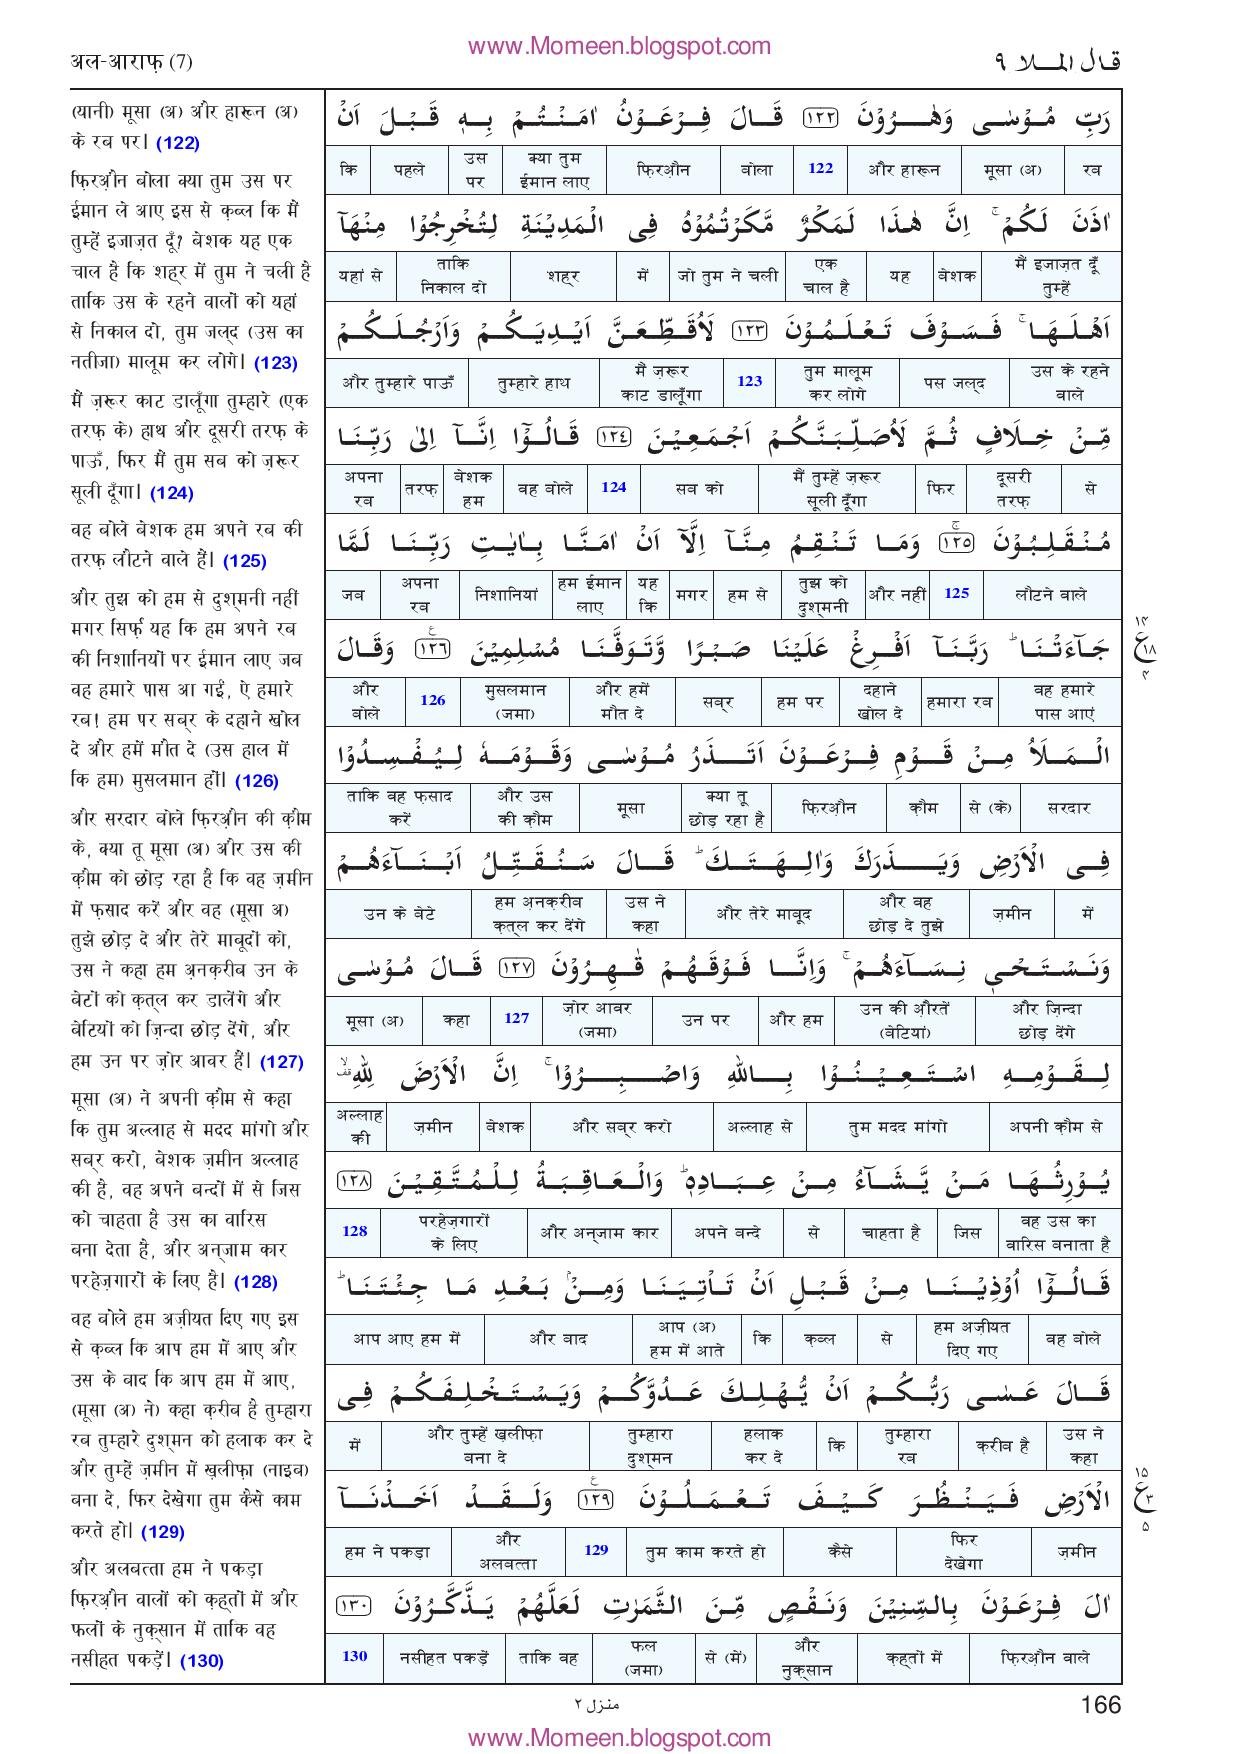 www.Momeen.blogspot.com
अल-आराफ़ (7)
قال الملا ٩
(यानी) मूसा (अ) और हारून (अ)
के रब पर। (122)
फ़िरऔ़न बोला क्या तुम उस पर
ईमान ले आए इस से क़ब्ल कि मैं
तुम्हें इजाज़त दूँ? बेशक यह एक
चाल है कि शह्र में तुम ने चली है
ताकि उस के रहने वालों को यहां
से निकाल दो, तुम जल्द (उस का
नतीजा) मालूम कर लोगे। (123)
मैं ज़रूर काट डालूँगा तुम्हारे (एक
तरफ़ के) हाथ और दूसरी तरफ़ के
पाऊँ, फिर मैं तुम सब को ज़रूर
सूली दूँगा। (124)
वह बोले बेशक हम अपने रब की
तरफ़ लौटने वाले हैं। (125)
और तुझ को हम से दुश्मनी नहीं
मगर सिर्फ़ यह कि हम अपने रब
की निशानियों पर ईमान लाए जब
वह हमारे पास आ गईं, ऐ हमारे
रब! हम पर सब्र के दहाने खोल
दे और हमें मौत दे (उस हाल में
कि हम) मुसलमान हों। (126)
और सरदार बोले फ़िरऔ़न की क़ौम
के, क्या तू मूसा (अ) और उस की
क़ौम को छोड़ रहा है कि वह ज़मीन
में फ़साद करें और वह (मूसा अ)
तुझे छोड़ दे और तेरे माबूदों को,
उस ने कहा हम अ़नक़रीब उन के
बेटों को क़त्ल कर डालेंगे और
बेटियों को ज़िन्दा छोड़ देंगे, और
हम उन पर ज़ोर आवर हैं। (127)
मूसा (अ) ने अपनी क़ौम से कहा
कि तुम अल्लाह से मदद मांगो और
सब्र करो, बेशक ज़मीन अल्लाह
की है, वह अपने बन्दों में से जिस
को चाहता है उस का वारिस
बना देता है, और अन्जाम कार
परहेज़गारों के लिए है। (128)
वह बोले हम अज़ीयत दिए गए इस
से क़ब्ल कि आप हम में आए और
उस के बाद कि आप हम में आए,
(मूसा (अ) ने) कहा क़रीब है तुम्हारा
रब तुम्हारे दुश्मन को हलाक कर दे
और तुम्हें ज़मीन में ख़लीफ़ा (नाइब)
बना दे, फिर देखेगा तुम कैसे काम
करते हो। (129)
और अलबत्ता हम ने पकड़ा
फ़िरऔ़न वालों को क़ह्तों में और
फलों के नुक़्सान में ताकि वह
नसीहत पकड़ें। (130)
رَبِّ مُوْسٰى وَهٰرُوْنَ ١٢٢ قَالَ فِرْعَوْنُ اٰمَنْتُمْ بِهٖ قَبْلَ اَنْ
रब मूसा (अ) और हारून 122 बोला फ़िरऔ़न क्या तुम ईमान लाए उस पर पहले कि
اٰذَنَ لَكُمْ ۚ اِنَّ هٰذَا لَمَكْرٌ مَّكَرْتُمُوْهُ فِى الْمَدِيْنَةِ لِتُخْرِجُوْا مِنْهَآ
मैं इजाज़त दूँ तुम्हें बेशक यह एक चाल है जो तुम ने चली में शह्र ताकि निकाल दो यहां से
اَهْلَهَا ۚ فَسَوْفَ تَعْلَمُوْنَ ١٢٣ لَاُقَطِّعَنَّ اَيْدِيَكُمْ وَاَرْجُلَكُمْ
उस के रहने वाले पस जल्द तुम मालूम कर लोगे 123 मैं ज़रूर काट डालूँगा तुम्हारे हाथ और तुम्हारे पाऊँ
مِّنْ خِلَافٍ ثُمَّ لَاُصَلِّبَنَّكُمْ اَجْمَعِيْنَ ١٢٤ قَالُوْٓا اِنَّآ اِلٰى رَبِّنَا
से दूसरी तरफ़ फिर मैं तुम्हें ज़रूर सूली दूँगा सब को 124 वह बोले बेशक हम तरफ़ अपना रब
مُنْقَلِبُوْنَ ١٢٥ ۚ وَمَا تَنْقِمُ مِنَّآ اِلَّآ اَنْ اٰمَنَّا بِاٰيٰتِ رَبِّنَا لَمَّا
लौटने वाले 125 और नहीं तुझ को दुश्मनी हम से मगर यह कि हम ईमान लाए निशानियां अपना रब जब
جَآءَتْنَا ۭ رَبَّنَآ اَفْرِغْ عَلَيْنَا صَبْرًا وَّتَوَفَّنَا مُسْلِمِيْنَ ١٢٦ ع وَقَالَ
वह हमारे पास आएं हमारा रब दहाने खोल दे हम पर सब्र और हमें मौत दे मुसलमान (जमा) 126 और बोले
١٤ ع ١٨ ٤
الْمَلَاُ مِنْ قَوْمِ فِرْعَوْنَ اَتَذَرُ مُوْسٰى وَقَوْمَهٗ لِيُفْسِدُوْا
सरदार से (के) क़ौम फ़िरऔ़न क्या तू छोड़ रहा है मूसा और उस की क़ौम ताकि वह फ़साद करें
فِى الْاَرْضِ وَيَذَرَكَ وَاٰلِهَتَكَ ۭ قَالَ سَنُقَتِّلُ اَبْنَآءَهُمْ
में ज़मीन और वह छोड़ दे तुझे और तेरे माबूद उस ने कहा हम अ़नक़रीब क़त्ल कर देंगे उन के बेटे
وَنَسْتَحْىٖ نِسَآءَهُمْ ۚ وَاِنَّا فَوْقَهُمْ قٰهِرُوْنَ ١٢٧ قَالَ مُوْسٰى
और ज़िन्दा छोड़ देंगे उन की औ़रतें (बेटियां) और हम उन पर ज़ोर आवर (जमा) 127 कहा मूसा (अ)
لِقَوْمِهِ اسْتَعِيْنُوْا بِاللّٰهِ وَاصْبِرُوْا ۚ اِنَّ الْاَرْضَ لِلّٰهِ ۣۙ
अपनी क़ौम से तुम मदद मांगो अल्लाह से और सब्र करो बेशक ज़मीन अल्लाह की
يُوْرِثُهَا مَنْ يَّشَآءُ مِنْ عِبَادِهٖ ۭ وَالْعَاقِبَةُ لِلْمُتَّقِيْنَ ١٢٨
वह उस का वारिस बनाता है जिस चाहता है से अपने बन्दे और अन्जाम कार परहेज़गारों के लिए 128
قَالُوْٓا اُوْذِيْنَا مِنْ قَبْلِ اَنْ تَاْتِيَنَا وَمِنْۢ بَعْدِ مَا جِئْتَنَا ۭ
वह बोले हम अज़ीयत दिए गए से क़ब्ल कि आप (अ) हम में आते और बाद आप आए हम में
قَالَ عَسٰى رَبُّكُمْ اَنْ يُّهْلِكَ عَدُوَّكُمْ وَيَسْتَخْلِفَكُمْ فِى
उस ने कहा क़रीब है तुम्हारा रब कि हलाक कर दे तुम्हारा दुश्मन और तुम्हें ख़लीफ़ा बना दे में
الْاَرْضِ فَيَنْظُرَ كَيْفَ تَعْمَلُوْنَ ١٢٩ ع وَلَقَدْ اَخَذْنَآ
ज़मीन फिर देखेगा कैसे तुम काम करते हो 129 और अलबत्ता हम ने पकड़ा
١٥ ع ٣ ٥
اٰلَ فِرْعَوْنَ بِالسِّنِيْنَ وَنَقْصٍ مِّنَ الثَّمَرٰتِ لَعَلَّهُمْ يَذَّكَّرُوْنَ ١٣٠
फ़िरऔ़न वाले क़ह्तों में और नुक़्सान से (में) फल (जमा) ताकि वह नसीहत पकड़ें 130
منزل ٢
166
www.Momeen.blogspot.com